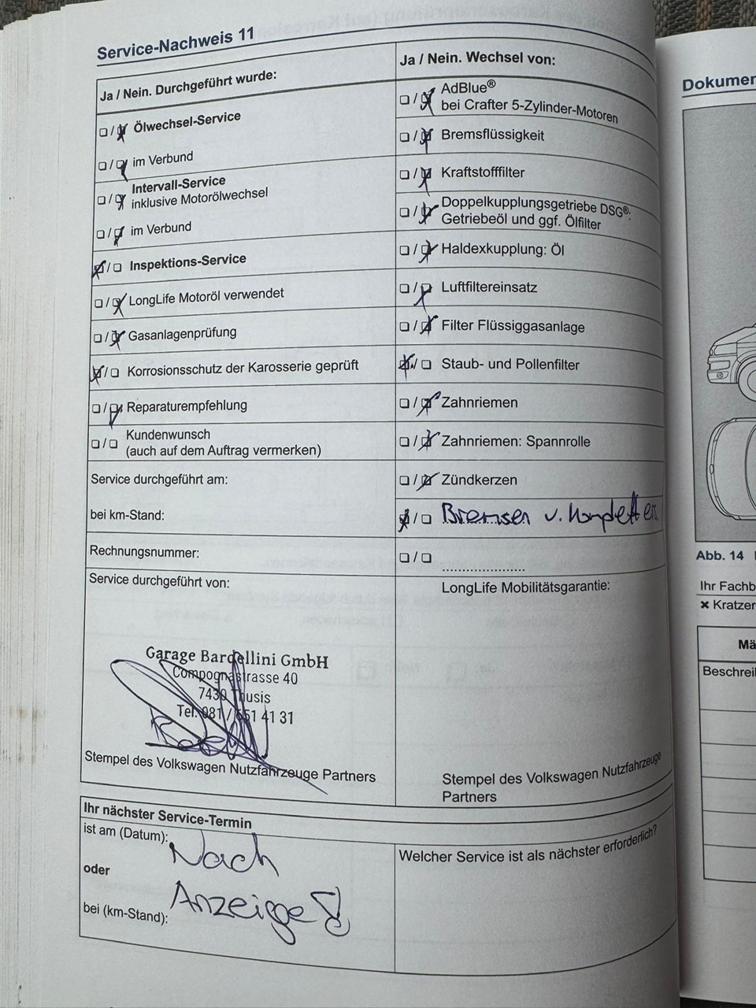 Service-Nachweis 11
Ja / Nein. Durchgeführt wurde:
Ölwechsel-Service
im Verbund
Intervall-Service
inklusive Motorölwechsel
im Verbund
Inspektions-Service
LongLife Motoröl verwendet
Gasanlagenprüfung
Korrosionsschutz der Karosserie geprüft
Reparaturempfehlung
Kundenwunsch
(auch auf dem Auftrag vermerken)
Service durchgeführt am:
bei km-Stand:
Rechnungsnummer:
Service durchgeführt von:
Garage Bardellini GmbH
Compognastrasse 40
7430 Thusis
Tel. 081 / 651 41 31
Stempel des Volkswagen Nutzfahrzeuge Partners
Ja / Nein. Wechsel von:
AdBlue®
bei Crafter 5-Zylinder-Motoren
Bremsflüssigkeit
Kraftstofffilter
Doppelkupplungsgetriebe DSG®:
Getriebeöl und ggf. Ölfilter
Haldexkupplung: Öl
Luftfiltereinsatz
Filter Flüssiggasanlage
Staub- und Pollenfilter
Zahnriemen
Zahnriemen: Spannrolle
Zündkerzen
Bremsen v. komplett
LongLife Mobilitätsgarantie:
Stempel des Volkswagen Nutzfahrzeuge
Partners
Ihr nächster Service-Termin
ist am (Datum): Nach
oder
bei (km-Stand): Anzeige
Welcher Service ist als nächster erforderlich?
Dokumen
Abb. 14
Ihr Fachb
× Kratzer
Mä
Beschrei